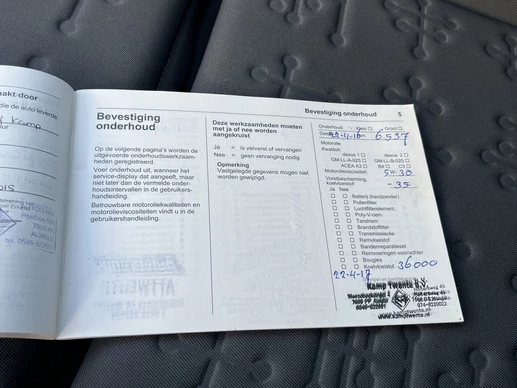 akt door
die de auto leverde
Kamp
ALMELO
tel. 0546-82
Bevestiging
onderhoud
Op de volgende pagina's worden de
uitgevoerde onderhoudswerkzaam-
heden geregistreerd.
Voer onderhoud uit, wanneer het
service-display dat aangeeft, maar
niet later dan de vermelde onder-
houdsintervallen in de gebruikers-
handleiding.
Betrouwbare motoroliekwaliteiten en
motorolieviscositeiten vindt u in de
gebruikershandleiding.
Deze werkzaamheden moeten
met ja of nee worden
aangekruist
Ja = is ververst of vervangen
Nee = geen vervanging nodig
OPMERKING
Vastgelegde gegevens mogen niet
worden gewijzigd.
Bevestiging onderhoud 5
Onderhoud: Klein Groot
22-4-16 6537
Motorolie
Kwaliteit:
dexos 1 dexos 2
GM-LL-A-025 GM-LL-B-025
ACEA A3 B4 C3
Motorolieviscositeit 5W30
Vorstbescherming
koelvloeistof -35
Ja Nee
Batterij (handzender)
Pollenfilter
Luchtfilterelement
Poly-V-riem
Tandriem
Brandstoffilter
Transmissieolie
Remvloeistof
Bandenreparatieset
Remvoeringen voor/achter
Bougies
Koelvloeistof 36000
22-4-17
Kamp Twente B.V.
074-8220022
www.kamptwente.nl